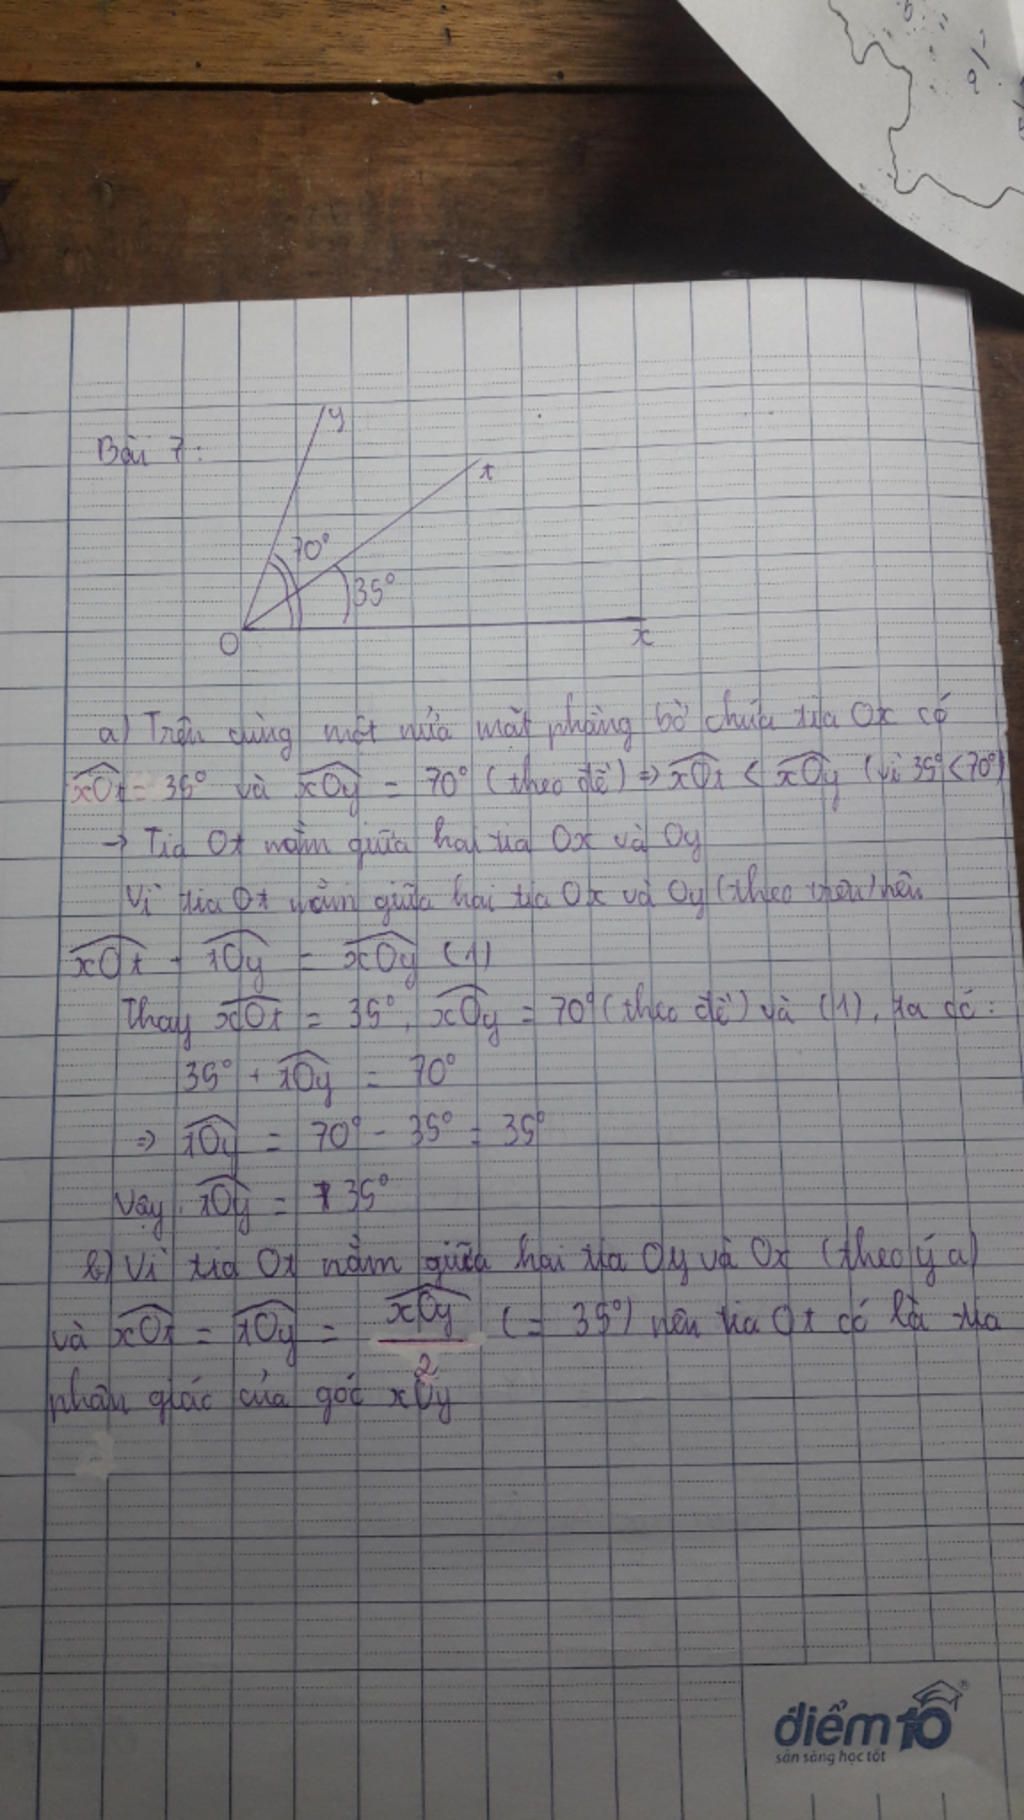 Bài 7:
y
t
70°
35°
O
x
a) Trên cùng một nửa mặt phẳng bờ chứa tia Ox có
xOt = 35° và xOy = 70° (theo đề) => xOt < xOy (vì 35° < 70°)
-> Tia Ot nằm giữa hai tia Ox và Oy
Vì tia Ot nằm giữa hai tia Ox và Oy (theo trên) nên
xOt + tOy = xOy (1)
Thay xOt = 35°, xOy = 70° (theo đề) và (1), ta có:
35° + tOy = 70°
=> tOy = 70° - 35° = 35°
Vậy tOy = 35°
b) Vì tia Ot nằm giữa hai tia Oy và Ox (theo ý a)
và xOt = tOy = xOy/2 (= 35°) nên tia Ot có là tia
phân giác của góc xOy
điểm 10
sẵn sàng học tốt